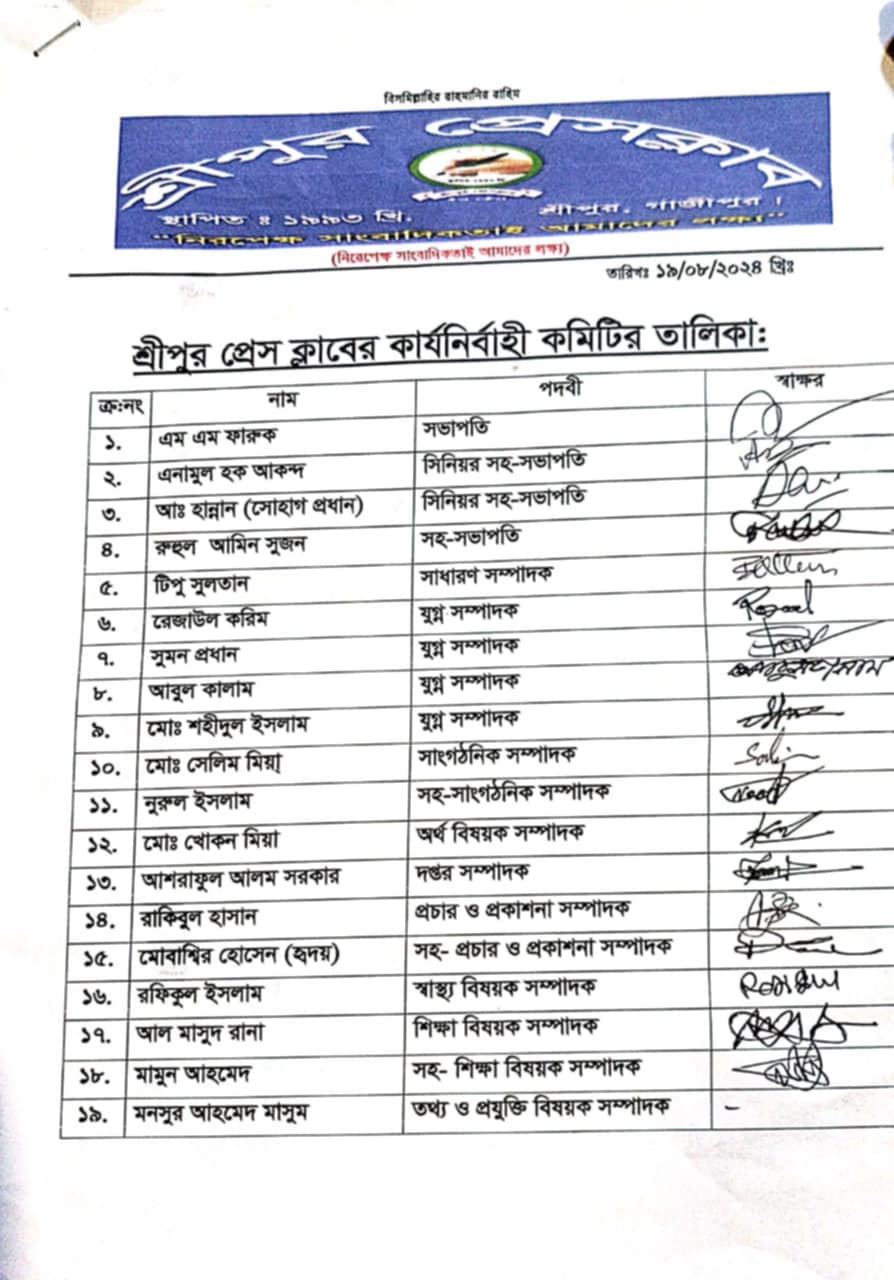 বিসমিল্লাহির রাহমানির রাহিম
শ্রীপুর প্রেসক্লাব
স্থাপিত ঃ ১৯৯৩ খ্রি. শ্রীপুর, গাজীপুর।
"নিরপেক্ষ সাংবাদিকতাই আমাদের লক্ষ্য"
(নিরেপেক্ষ সাংবাদিকতাই আমাদের লক্ষ্য)
তারিখঃ ১৯/০৮/২০২৪ খ্রিঃ
শ্রীপুর প্রেস ক্লাবের কার্যনির্বাহী কমিটির তালিকা:
ক্র:নং নাম পদবী স্বাক্ষর
১. এম এম ফারুক সভাপতি
২. এনামুল হক আকন্দ সিনিয়র সহ-সভাপতি
৩. আঃ হান্নান (সোহাগ প্রধান) সিনিয়র সহ-সভাপতি
৪. রুহুল আমিন সুজন সহ-সভাপতি
৫. টিপু সুলতান সাধারণ সম্পাদক
৬. রেজাউল করিম যুগ্ন সম্পাদক
৭. সুমন প্রধান যুগ্ন সম্পাদক
৮. আবুল কালাম যুগ্ন সম্পাদক
৯. মোঃ শহীদুল ইসলাম যুগ্ন সম্পাদক
১০. মোঃ সেলিম মিয়া সাংগঠনিক সম্পাদক
১১. নুরুল ইসলাম সহ-সাংগঠনিক সম্পাদক
১২. মোঃ খোকন মিয়া অর্থ বিষয়ক সম্পাদক
১৩. আশরাফুল আলম সরকার দপ্তর সম্পাদক
১৪. রাকিবুল হাসান প্রচার ও প্রকাশনা সম্পাদক
১৫. মোবাশ্বির হোসেন (হৃদয়) সহ- প্রচার ও প্রকাশনা সম্পাদক
১৬. রফিকুল ইসলাম স্বাস্থ্য বিষয়ক সম্পাদক
১৭. আল মাসুদ রানা শিক্ষা বিষয়ক সম্পাদক
১৮. মামুন আহমেদ সহ- শিক্ষা বিষয়ক সম্পাদক
১৯. মনসুর আহমেদ মাসুম তথ্য ও প্রযুক্তি বিষয়ক সম্পাদক -